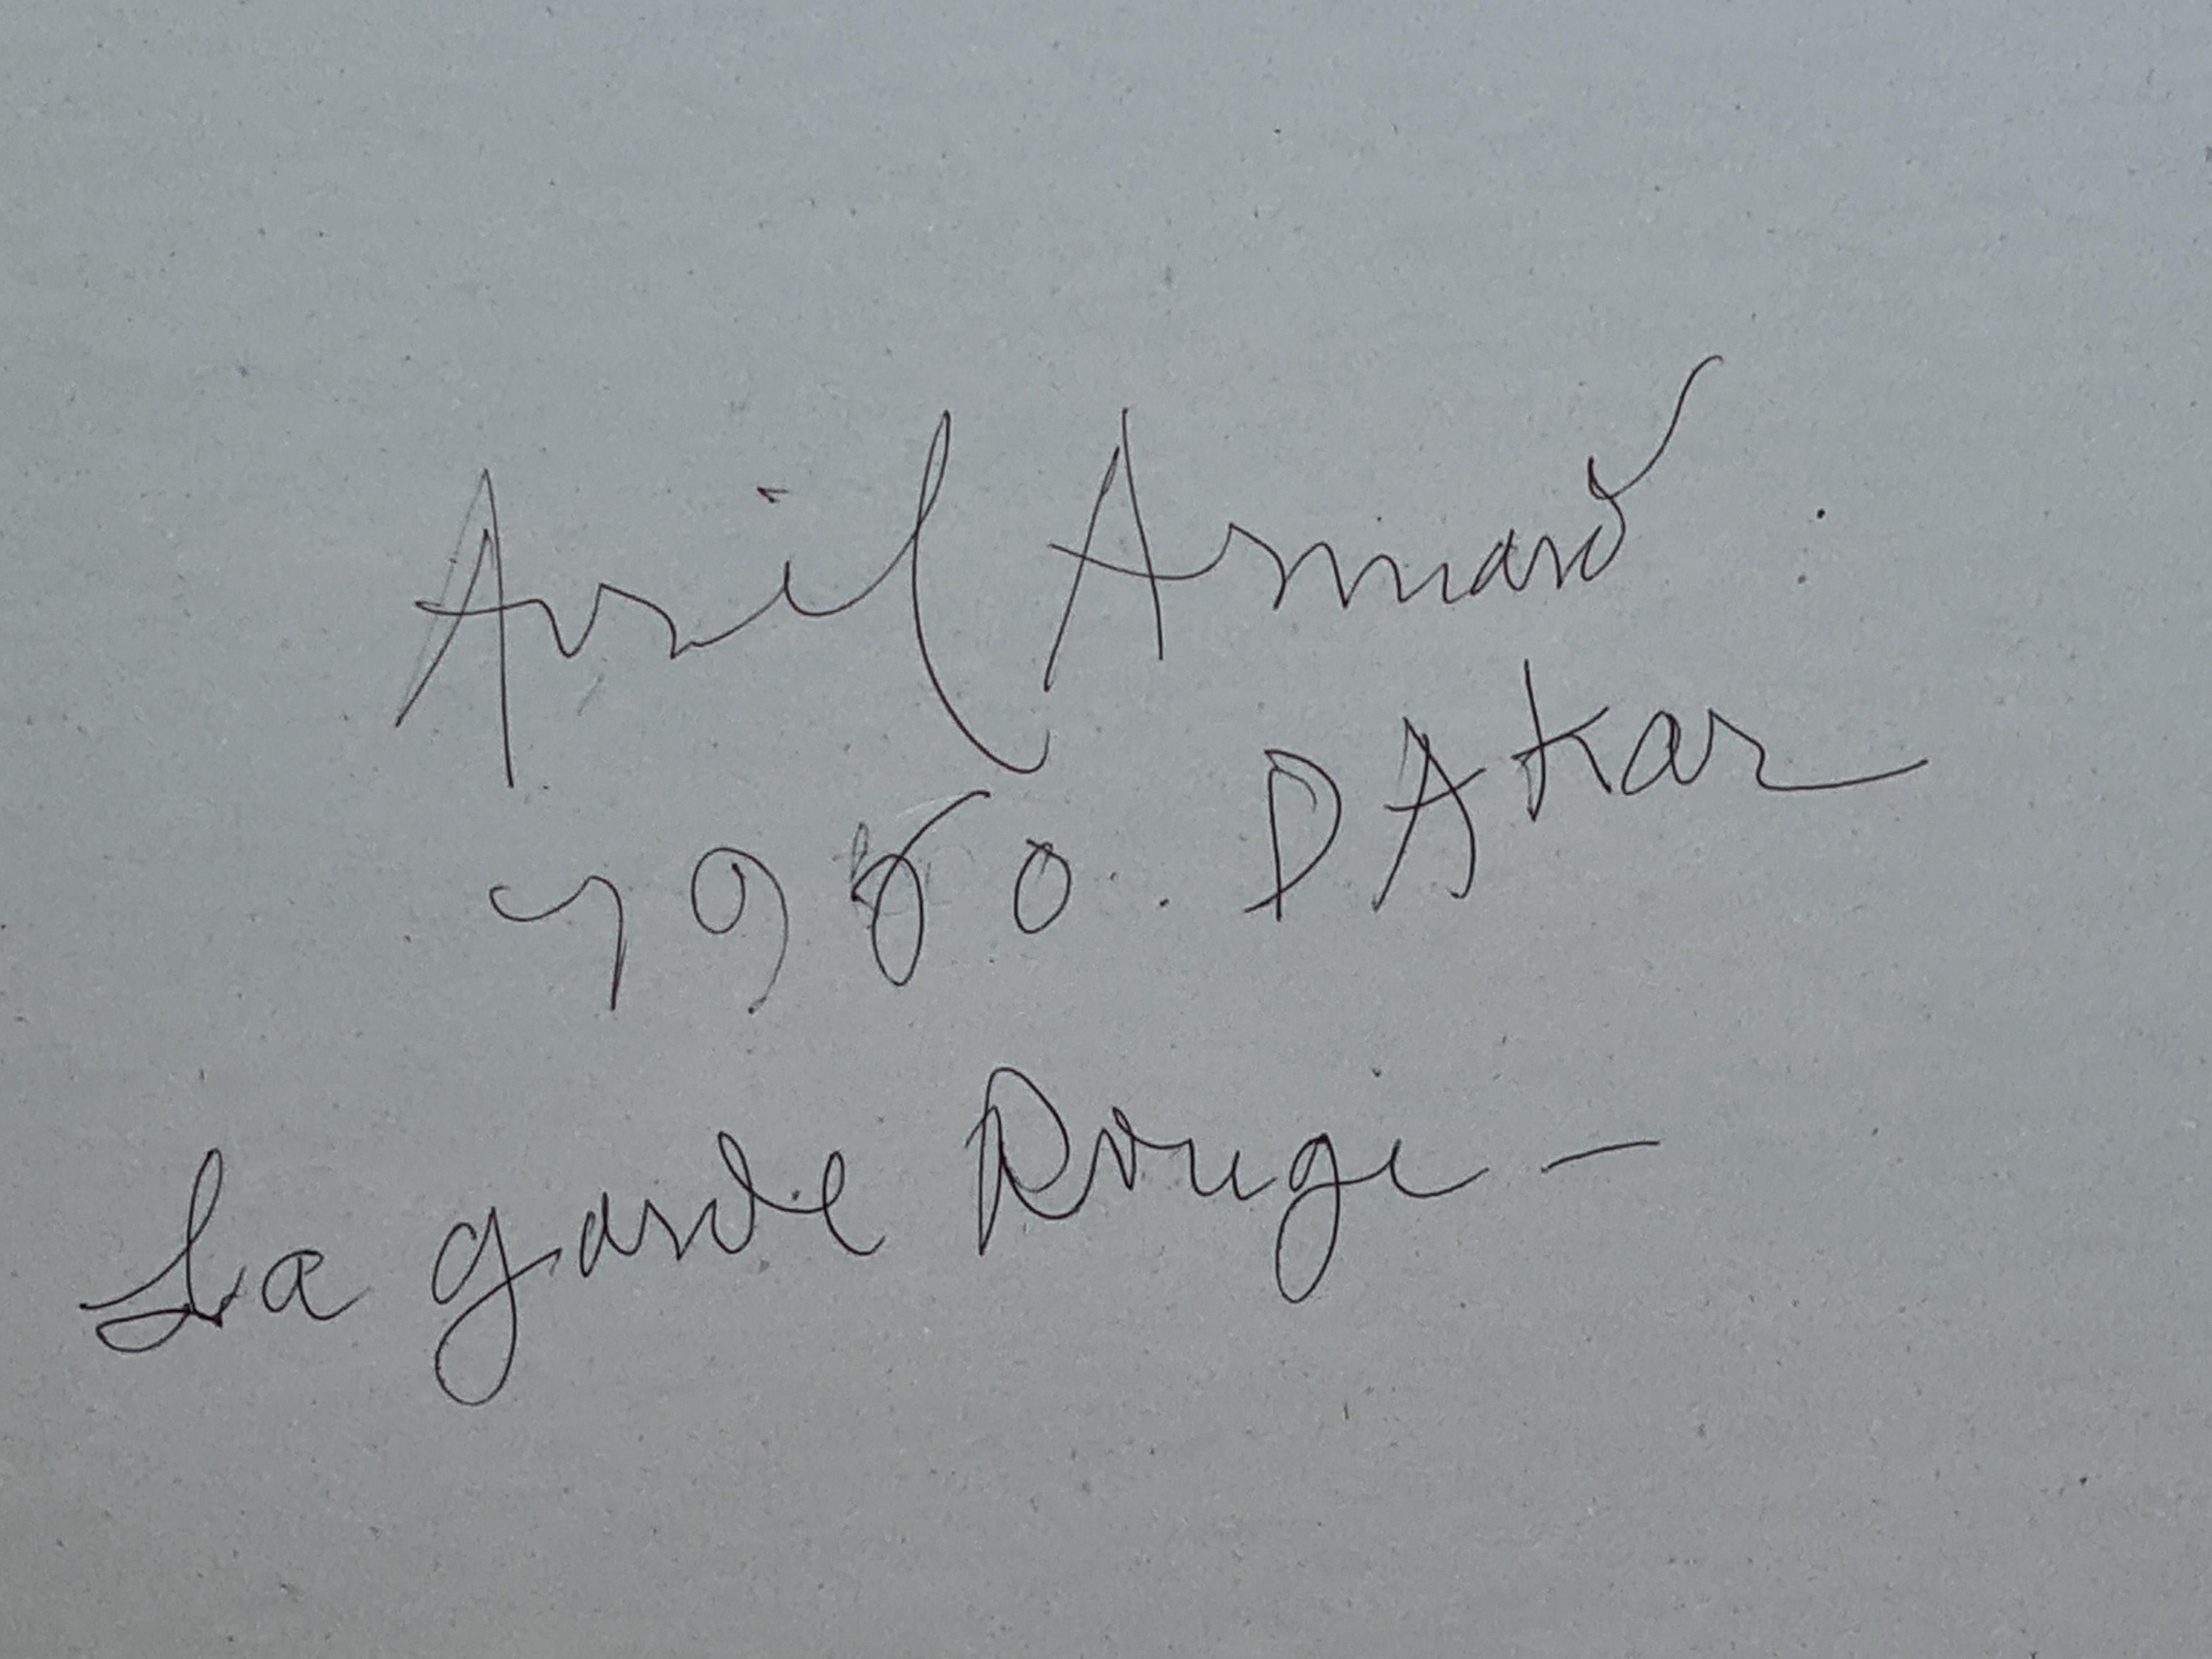 Avril Armand
1960. DAkar
La garde Rouge -